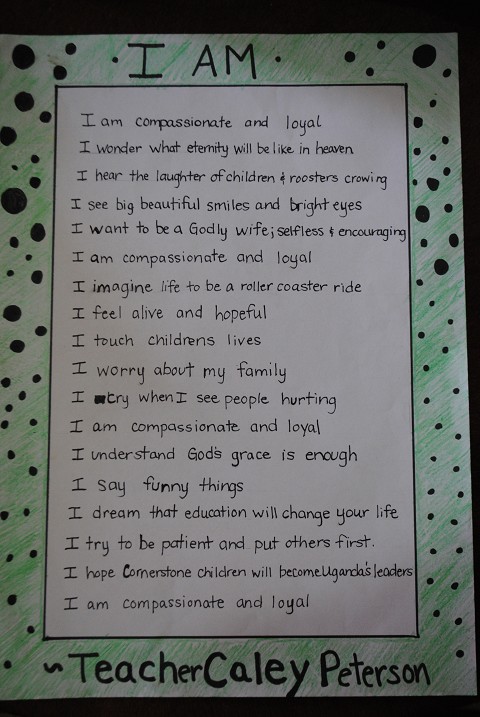 I AM
I am compassionate and loyal
I wonder what eternity will be like in heaven
I hear the laughter of children & roosters crowing
I see big beautiful smiles and bright eyes
I want to be a Godly wife; selfless & encouraging
I am compassionate and loyal
I imagine life to be a roller coaster ride
I feel alive and hopeful
I touch childrens lives
I worry about my family
I cry when I see people hurting
I am compassionate and loyal
I understand God's grace is enough
I say funny things
I dream that education will change your life
I try to be patient and put others first.
I hope Cornerstone children will become Uganda's leaders
I am compassionate and loyal
~Teacher Caley Peterson